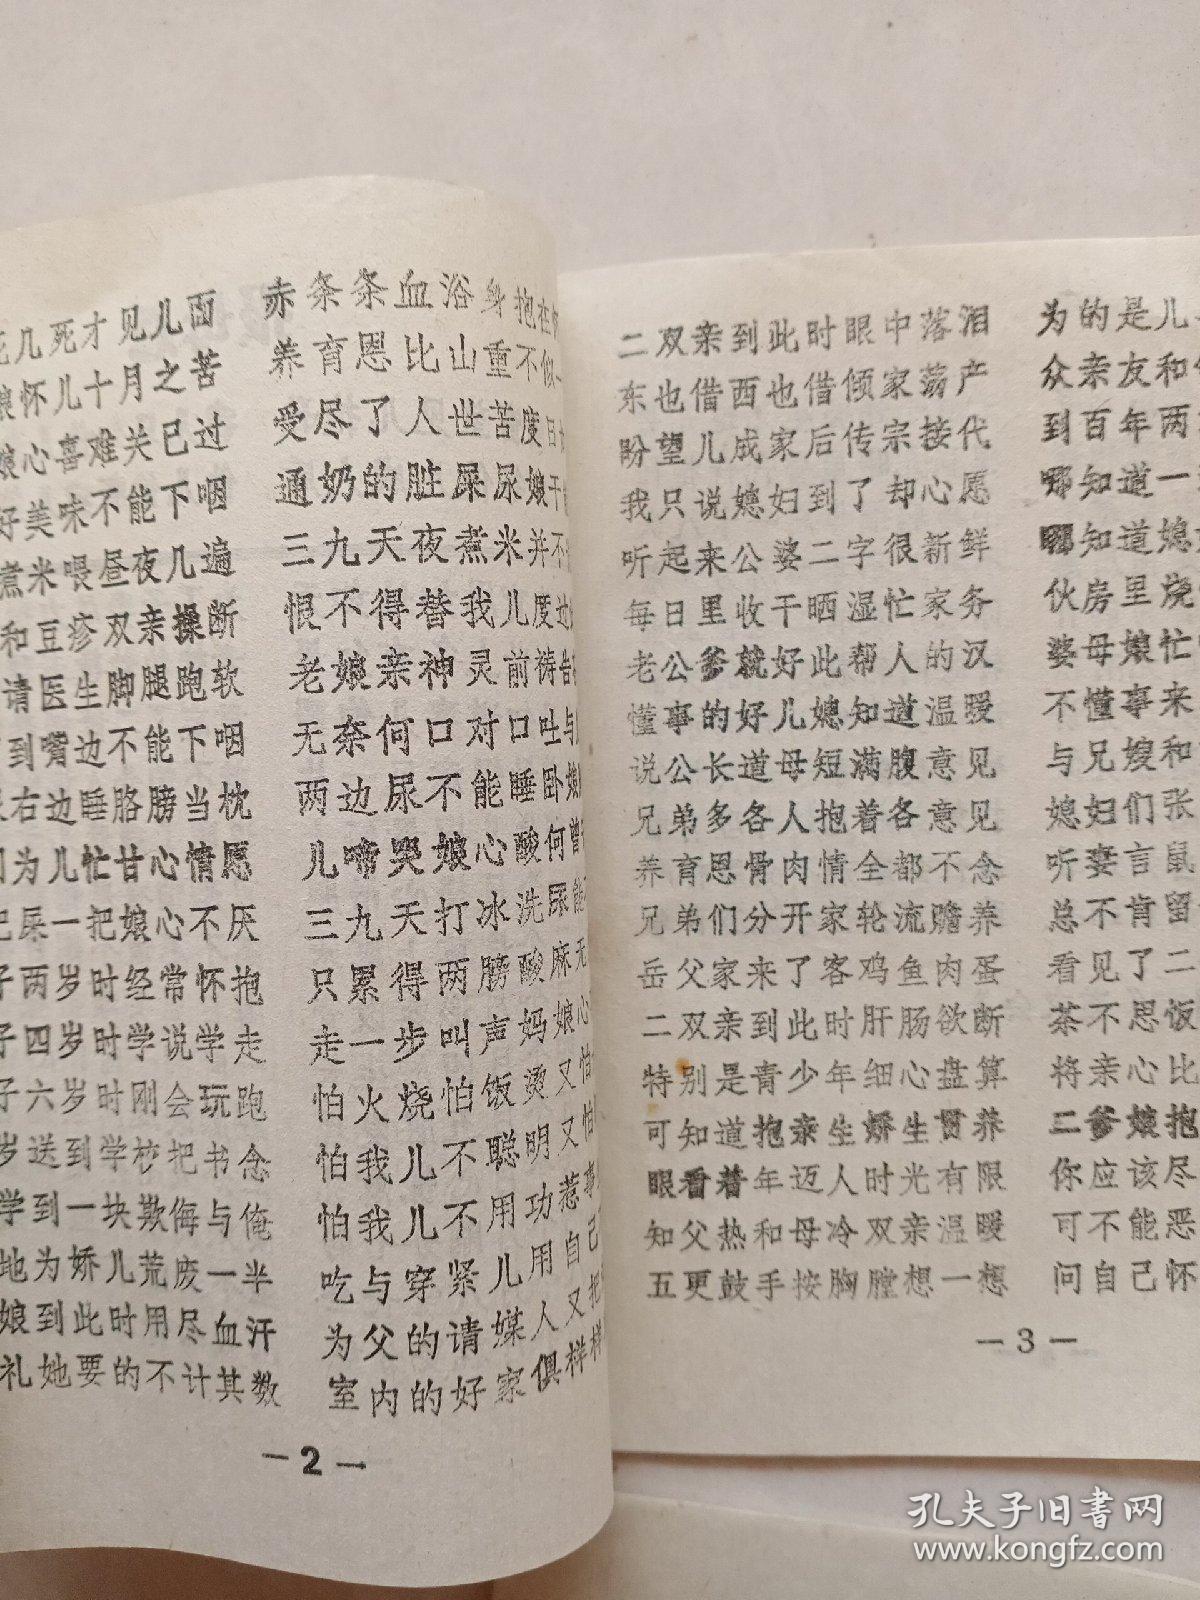 几死才见儿面
怀儿十月之苦
娘心喜难关已过
好美味不能下咽
煮米喂昼夜几遍
和豆疹双亲操断
请医生脚腿跑软
到嘴边不能下咽
右边睡胳膀当枕
为儿忙甘心情愿
屎一把娘心不厌
子两岁时经常怀抱
子四岁时学说学走
子六岁时刚会玩跑
岁送到学校把书念
学到一块欺侮与俺
地为娇儿荒废一半
娘到此时用尽血汗
礼她要的不计其数
赤条条血浴身抱在
养育恩比山重不似
受尽了人世苦度日
通奶的脏屎尿娘干
三九天夜煮米并不
恨不得替我儿度过
老娘亲神灵前祷告
无奈何口对口吐与
两边尿不能睡卧娘
儿啼哭娘心酸何曾
三九天打冰洗尿能
只累得两膀酸麻无
走一步叫声妈娘心
怕火烧怕饭烫又怕
怕我儿不聪明又怕
怕我儿不用功惹事
吃与穿紧儿用自己
为父的请媒人又把
室内的好家俱样样
—2—
二双亲到此时眼中落泪
东也借西也借倾家荡产
盼望儿成家后传宗接代
我只说媳妇到了却心愿
听起来公婆二字很新鲜
每日里收干晒湿忙家务
老公爹就好此帮人的汉
懂事的好儿媳知道温暖
说公长道母短满腹意见
兄弟多各人抱着各意见
养育恩骨肉情全都不念
兄弟们分开家轮流赡养
岳父家来了客鸡鱼肉蛋
二双亲到此时肝肠欲断
特别是青少年细心盘算
可知道抱亲生娇生贯养
眼看着年迈人时光有限
知父热和母冷双亲温暖
五更鼓手按胸膛想一想
为的是儿
众亲友和
到百年两
哪知道一
哪知道媳
伙房里烧
婆母娘忙
不懂事来
与兄嫂和
媳妇们张
听妻言鼠
总不肯留
看见了二
茶不思饭
将亲心比
二爹娘抱
你应该尽
可不能恶
问自己怀
—3—
孔夫子旧书网
www.kongfz.com